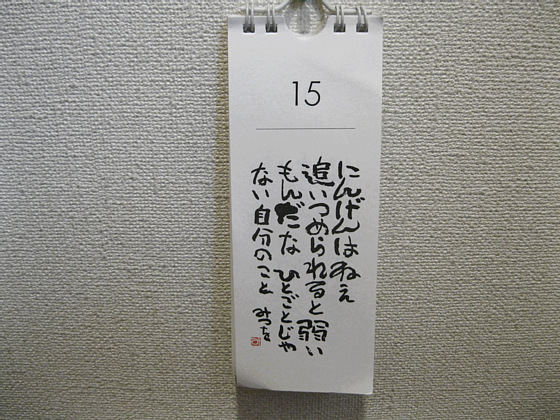 15
にんげんはねえ
追いつめられると弱い
もんだな ひとごとじゃ
ない自分のこと みつを